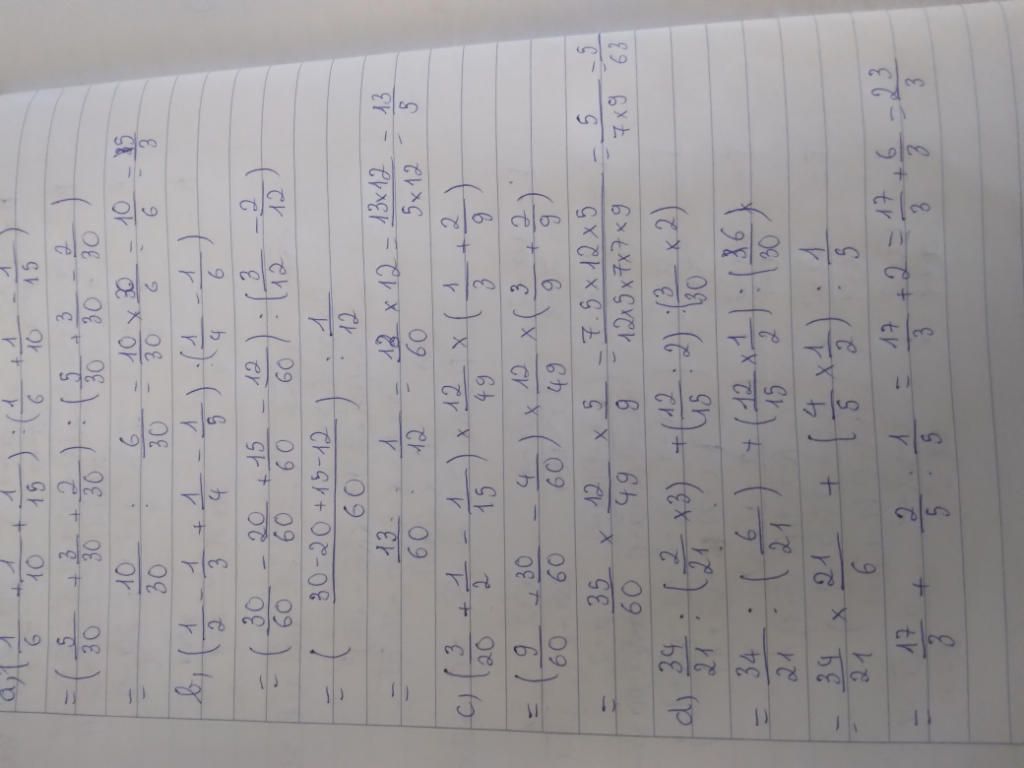 a, (1/6 + 1/10 + 1/15) : (1/6 + 1/10 - 1/15)
= (5/30 + 3/30 + 2/30) : (5/30 + 3/30 - 2/30)
= 10/30 : 6/30 = 10/30 × 30/6 = 10/6 = 5/3
b, (1/2 - 1/3 + 1/4 - 1/5) : (1/4 - 1/6)
= (30/60 - 20/60 + 15/60 - 12/60) : (3/12 - 2/12)
= (30-20+15-12/60) : 1/12
= 13/60 : 1/12 = 13/60 × 12 = 13×12/5×12 = 13/5
c) (3/20 + 1/2 - 1/15) × 12/49 × (1/3 + 2/9)
= (9/60 + 30/60 - 4/60) × 12/49 × (3/9 + 2/9)
= 35/60 × 12/49 × 5/9 = 7.5×12×5/12×5×7×7×9 = 5/7×9 = 5/63
d) 34/21 : (2/21 ×3) + (12/15 : 2) : (3/30 × 2)
= 34/21 : (6/21) + (12/15 × 1/2) : (6/30)
= 34/21 × 21/6 + (4/5 × 1/2) : 1/5
= 17/3 + 2/5 : 1/5 = 17/3 + 2 = 17/3 + 6/3 = 23/3